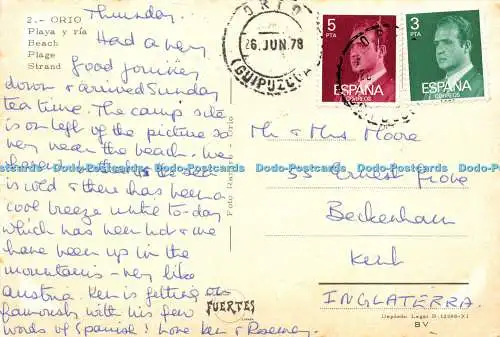 2.- ORIO
Playa y ría
Beach
Plage
Strand
Thursday.
Had a very
good journey
down & arrived Sunday
tea time. The camp site
is on left of the picture so
very near the beach. We
haven't the sea
is wild & there has been a
cool breeze until to-day
which has been hot & we
have been up in the
mountains - very like
Austria. Ken is getting on
famously with his few
words of Spanish! Love Ken & Rosemary
Foto Orio
ORIO
26. JUN. 78
(GUIPUZCOA)
5
PTA
ESPAÑA
CORREOS
3
PTA
ESPAÑA
CORREOS
Mr & Mrs Moore
55 Ernest Grove
Beckenham
Kent
INGLATERRA.
FUERTES
Depósito Legal B.
BV
Dodo-Postcards Dodo-Postcards Dodo-Postcards Dodo-Postcards Dodo-Postcards